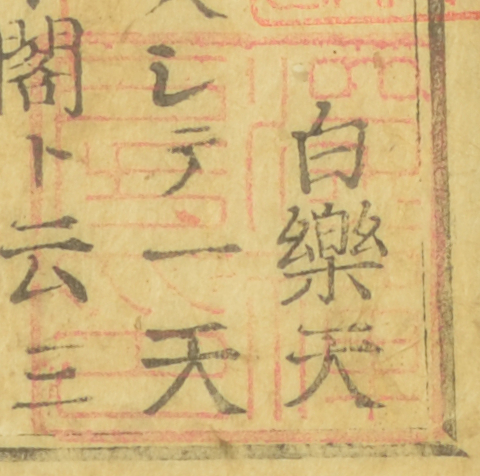 白樂天
シテ一天
閣ト云三